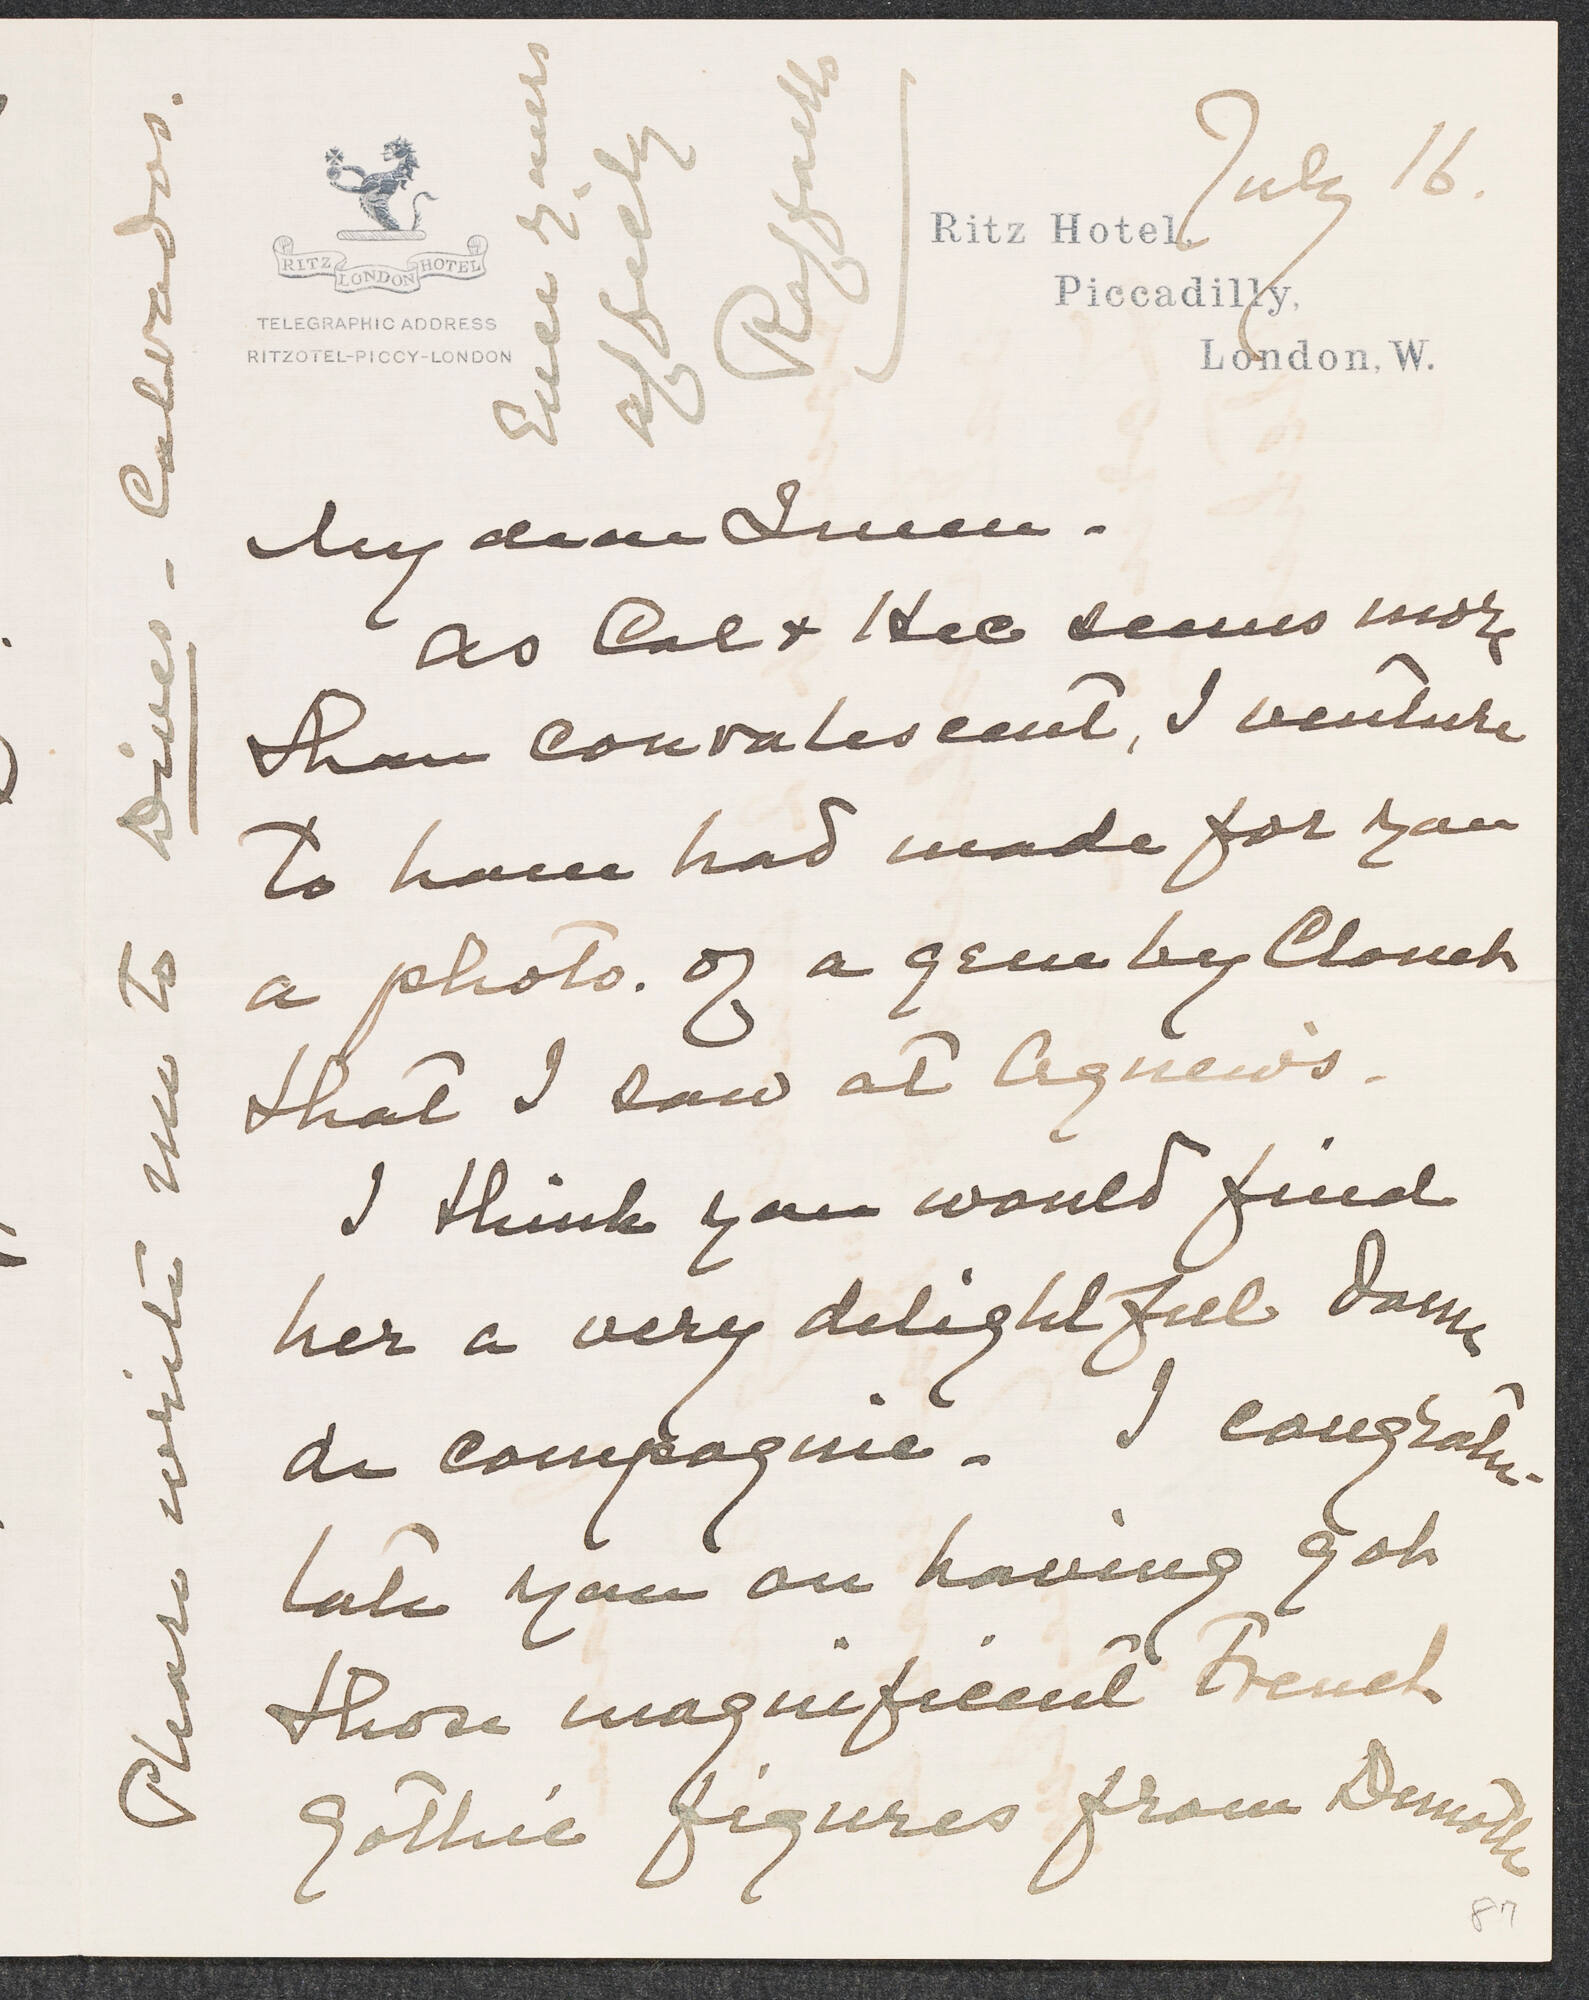 July 16.
RITZ LONDON HOTEL
TELEGRAPHIC ADDRESS
RITZOTEL-PICCY-LONDON
Ritz Hotel,
Piccadilly,
London, W.
My dear
As Cal & Hec seems more
than convalescent, I venture
to have had made for you
a photo. of a gem by Clouet
that I saw at Agnew's.
I think you would find
her a very delightful Dame
de compagnie. I congratu-
late you on having got
those magnificent French
Gothic figures from Demotte
87
Please write me to Dives - Calvados.
Ever yours
affecly